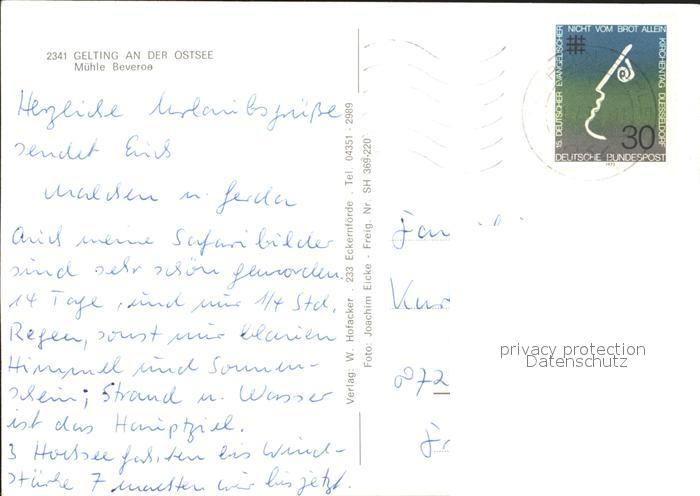 2341 GELTING AN DER OSTSEE
Mühle Beveroe
Herzliche Urlaubsgrüße
sendet Euch
Malchen u. Gerda
Auch meine Safaribilder
sind sehr schön geworden.
14 Tage, und nur 1/4 Std.
Regen, sonst nur blauen
Himmel und Sonnen-
schein; Strand u. Wasser
ist das Hauptziel.
3 Hochseefahrten bis Wind-
stärke 7 machten wir bis jetzt.
Verlag: W. Hofacker . 233 Eckernförde . Tel. 04351 - 2989
Foto: Joachim Eicke - Freig. Nr. SH 369-220
15. DEUTSCHER EVANGELISCHER KIRCHENTAG DUESSELDORF
NICHT VOM BROT ALLEIN
30
DEUTSCHE BUNDESPOST
1973
Fam
Kur
872
privacy protection
Datenschutz